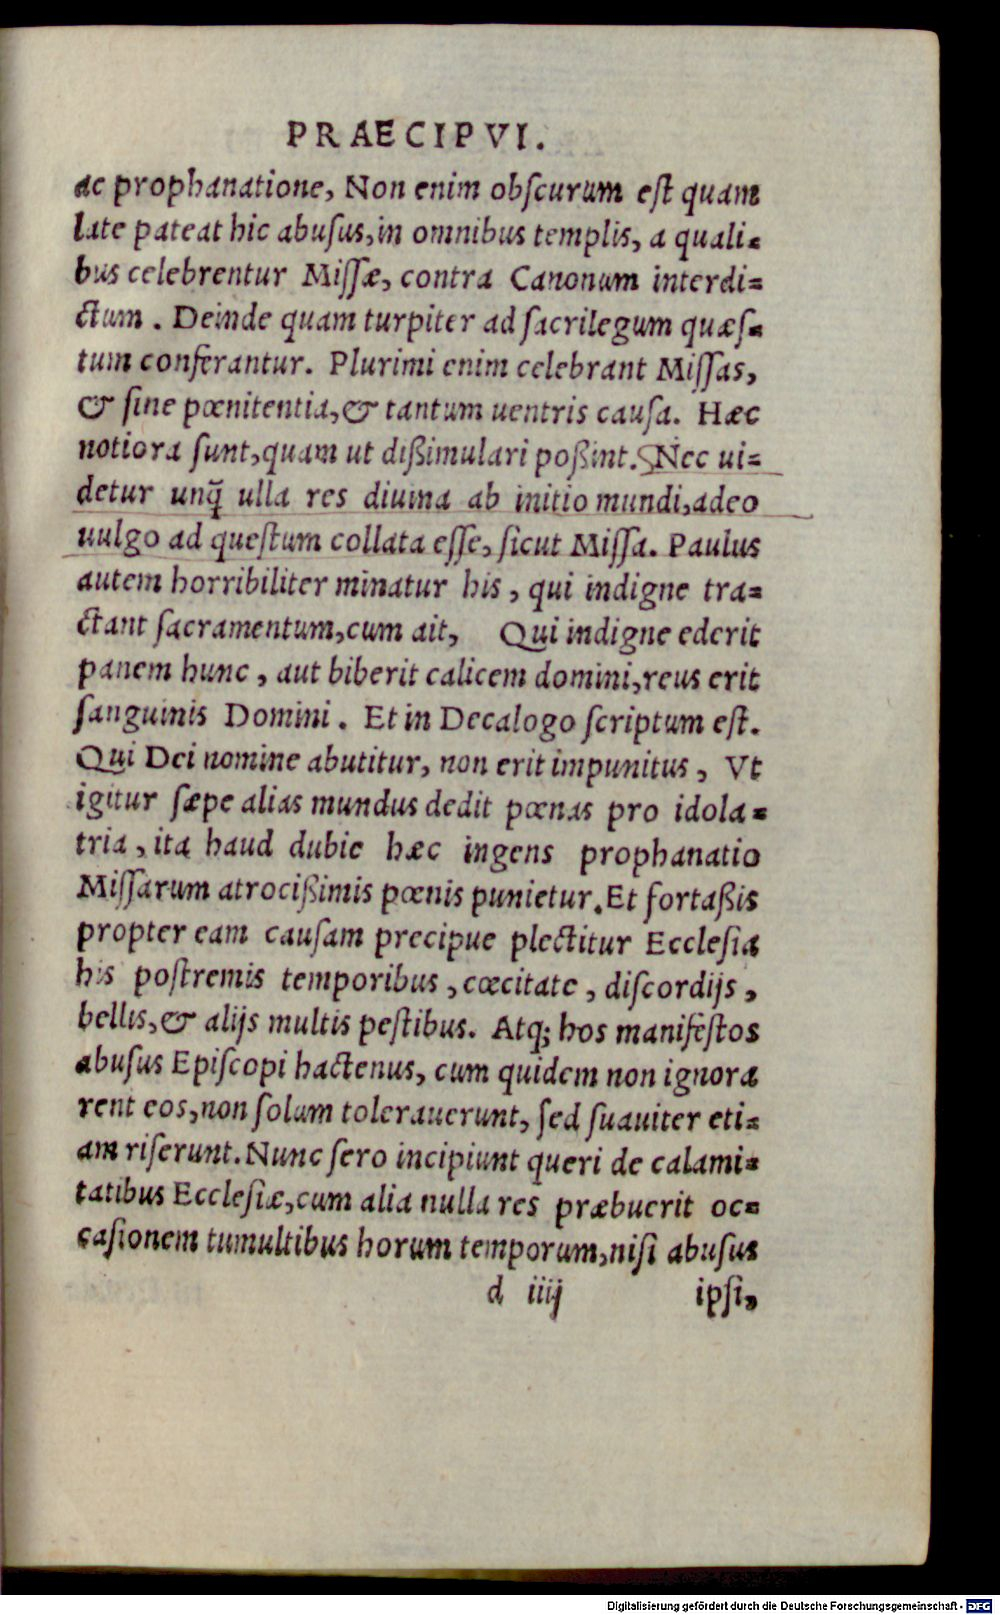 PRAECIPVI.
ac prophanatione, Non enim obſcurum eſt quam
late pateat hic abuſus, in omnibus templis, a quali=
bus celebrentur Miſſæ, contra Canonum interdi=
ctum. Deinde quam turpiter ad ſacrilegum quæſ=
tum conferantur. Plurimi enim celebrant Miſſas,
& ſine pœnitentia, & tantum uentris cauſa. Hæc
notiora ſunt, quam ut dißimulari poßint. Nec ui=
detur unq̃ ulla res diuina ab initio mundi, adeo
uulgo ad queſtum collata eſſe, ſicut Miſſa. Paulus
autem horribiliter minatur his, qui indigne tra=
ctant ſacramentum, cum ait, Qui indigne ederit
panem hunc, aut biberit calicem domini, reus erit
ſanguinis Domini. Et in Decalogo ſcriptum eſt.
Qui Dei nomine abutitur, non erit impunitus, Vt
igitur ſæpe alias mundus dedit pœnas pro idola=
tria, ita haud dubie hæc ingens prophanatio
Miſſarum atrocißimis pœnis punietur. Et fortaßis
propter eam cauſam precipue plectitur Eccleſia
his poſtremis temporibus, cœcitate, diſcordijs,
bellis, & alijs multis peſtibus. Atq; hos manifeſtos
abuſus Epiſcopi hactenus, cum quidem non ignora
rent eos, non ſolum tolerauerunt, ſed ſuauiter eti=
am riſerunt. Nunc ſero incipiunt queri de calami=
tatibus Eccleſiæ, cum alia nulla res præbuerit oc=
caſionem tumultibus horum temporum, niſi abuſus
d iiij ipſi,
Digitalisierung gefördert durch die Deutsche Forschungsgemeinschaft - DFG